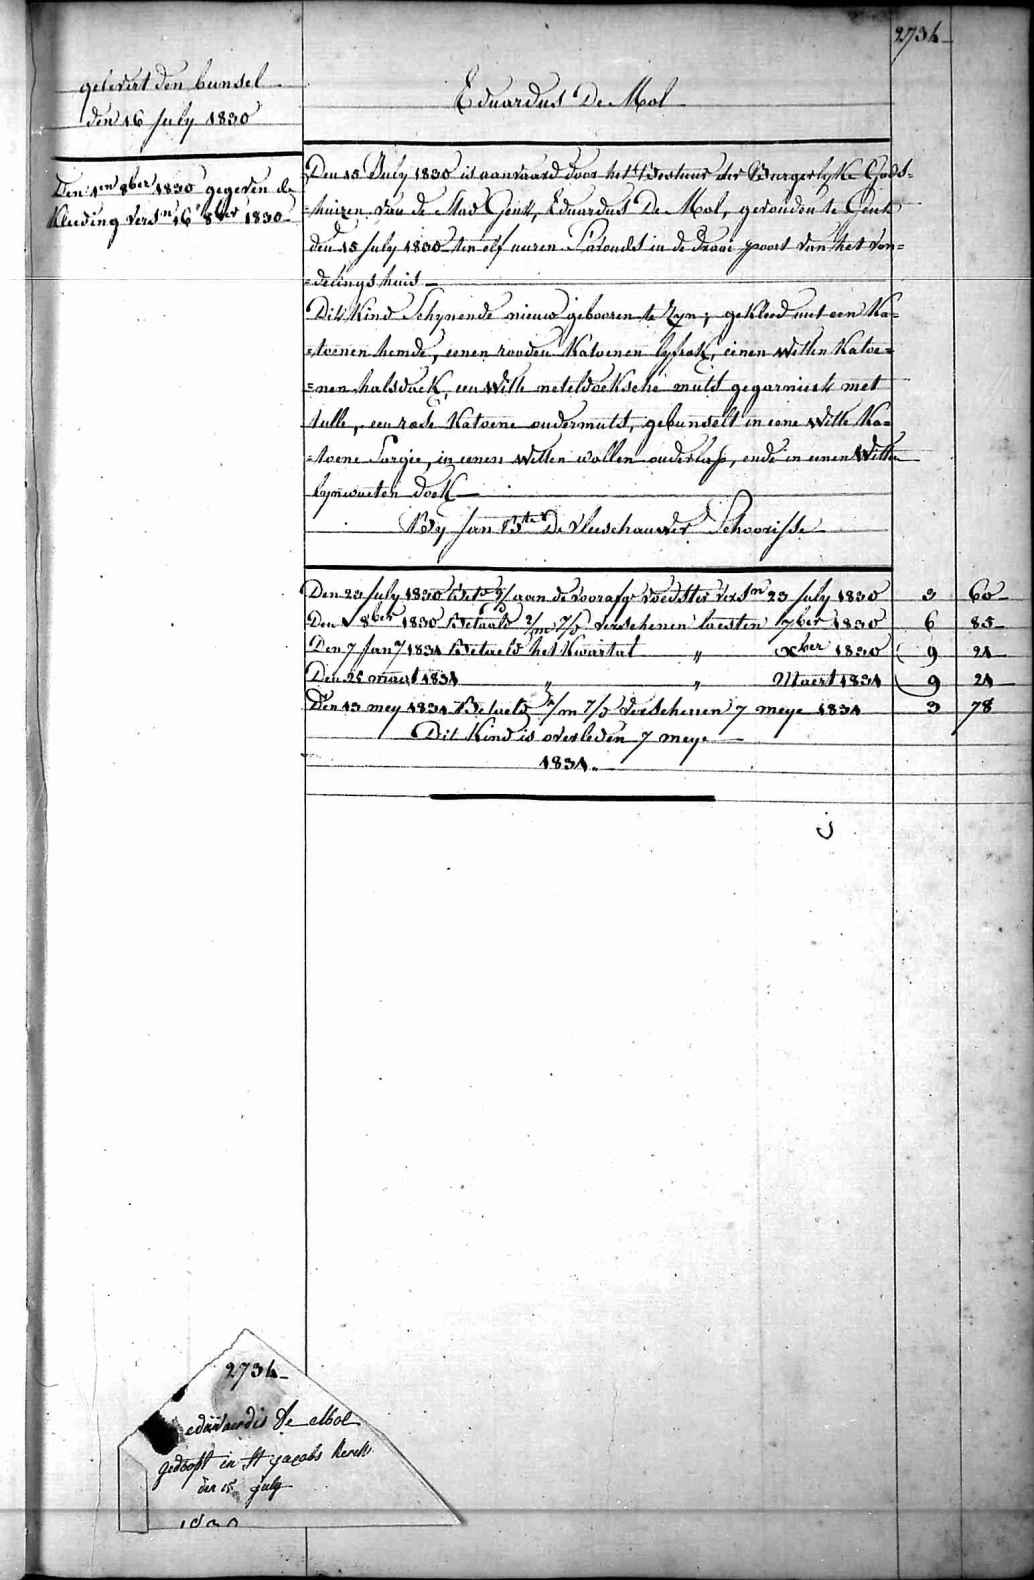 2734
gelevert den bunsel
den 16 July 1830
Eduardus De Mol
Den 1en 8ber 1830 gegeven de
Kleeding versn 16 8ber 1830
Den 15 July 1830 is aanvaard door het Bestuur der Burgerlyke Gods=
=huizen van de Stad Gent, Eduardus De Mol, gevonden te Gent
den 15 July 1830 ten elf uuren S'avonds in de Draai poort van het von=
=delingshuis
Dit Kind Schynende nieuw gebooren te Zyn, gekleed met een Ka=
=toenen hemde, eenen rooden Katoenen lyfrok, eenen witten Katoe=
=nen halsdoek, een Witte neteldoeksche muts gegarniert met
tulle, een rode Katoene ondermuts, gebunselt in eene Witte Ka=
=toene Sargie, in eenen Witten wollen onderlap, ende in eenen Witten
lynwaeten doek
By Jan Bte De Vleeschauwer Schoorisse
Den 23 July 1830 aan de voorafge voedster versn 23 July 1830 3 60
Den 8ber 1830 Betaald 2/m 7/d verschenen laesten 7ber 1830 6 85
Den 7 Jany 1831 Betaeld het Kwartal " Xber 1830 9 21
Den 25 maert 1831 " " Maert 1831 9 21
Den 13 mey 1831 Betaeld 1/m 7/d verschenen 7 meye 1831 3 78
Dit Kind is overleden 7 meye
1831.
2734
eduaerdis De Mol
gedoopt in St Jacobs kerck
den 15 July
1830